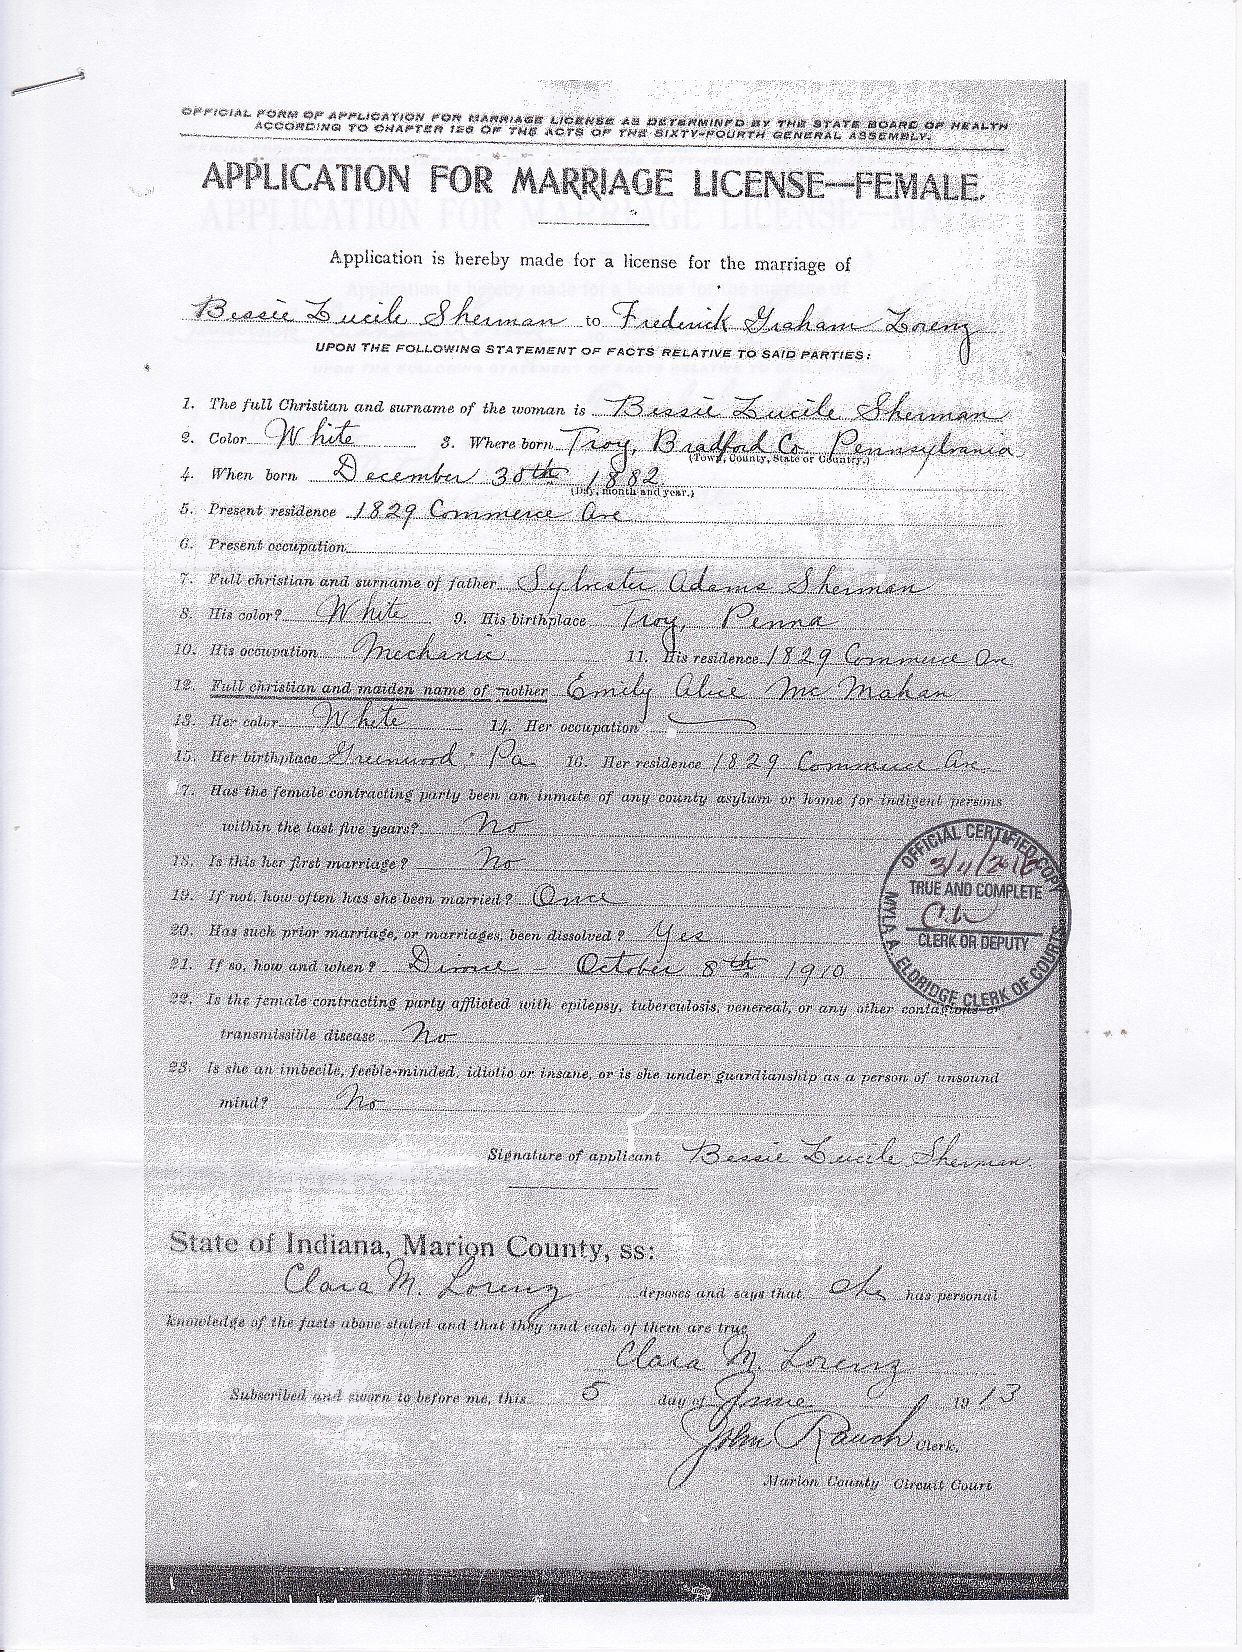 OFFICIAL FORM OF APPLICATION FOR MARRIAGE LICENSE AS DETERMINED BY THE STATE BOARD OF HEALTH
ACCORDING TO CHAPTER 126 OF THE ACTS OF THE SIXTY-FOURTH GENERAL ASSEMBLY.
APPLICATION FOR MARRIAGE LICENSE—FEMALE.
Application is hereby made for a license for the marriage of
Bessie Lucile Sherman to Frederick Graham Lorenz
UPON THE FOLLOWING STATEMENT OF FACTS RELATIVE TO SAID PARTIES:
1. The full Christian and surname of the woman is Bessie Lucile Sherman
2. Color White 3. Where born Troy, Bradford Co. Pennsylvania
(Town, County, State or Country.)
4. When born December 30th 1882
(Day, month and year.)
5. Present residence 1829 Commerce Ave
6. Present occupation
7. Full christian and surname of father Sylvester Adams Sherman
8. His color? White 9. His birthplace Troy, Penna
10. His occupation Mechanic 11. His residence 1829 Commerce Ave
12. Full christian and maiden name of mother Emily Alice McMahan
13. Her color White 14. Her occupation
15. Her birthplace Greenwood, Pa. 16. Her residence 1829 Commerce Ave
17. Has the female contracting party been an inmate of any county asylum or home for indigent persons
within the last five years? No
18. Is this her first marriage? No
19. If not, how often has she been married? Once
20. Has such prior marriage, or marriages, been dissolved? Yes
21. If so, how and when? Divorce – October 8th 1910
22. Is the female contracting party afflicted with epilepsy, tuberculosis, venereal, or any other contagious or
transmissible disease No
23. Is she an imbecile, feeble-minded, idiotic or insane, or is she under guardianship as a person of unsound
mind? No
OFFICIAL CERTIFIED COPY
TRUE AND COMPLETE
CLERK OR DEPUTY
MYLA A. ELDRIDGE CLERK OF COURTS
Signature of applicant Bessie Lucile Sherman
State of Indiana, Marion County, ss:
Clara M. Lorenz deposes and says that she has personal
knowledge of the facts above stated and that they and each of them are true
Clara M. Lorenz
Subscribed and sworn to before me, this 5 day of June 1913
John Rauch Clerk.
Marion County Circuit Court